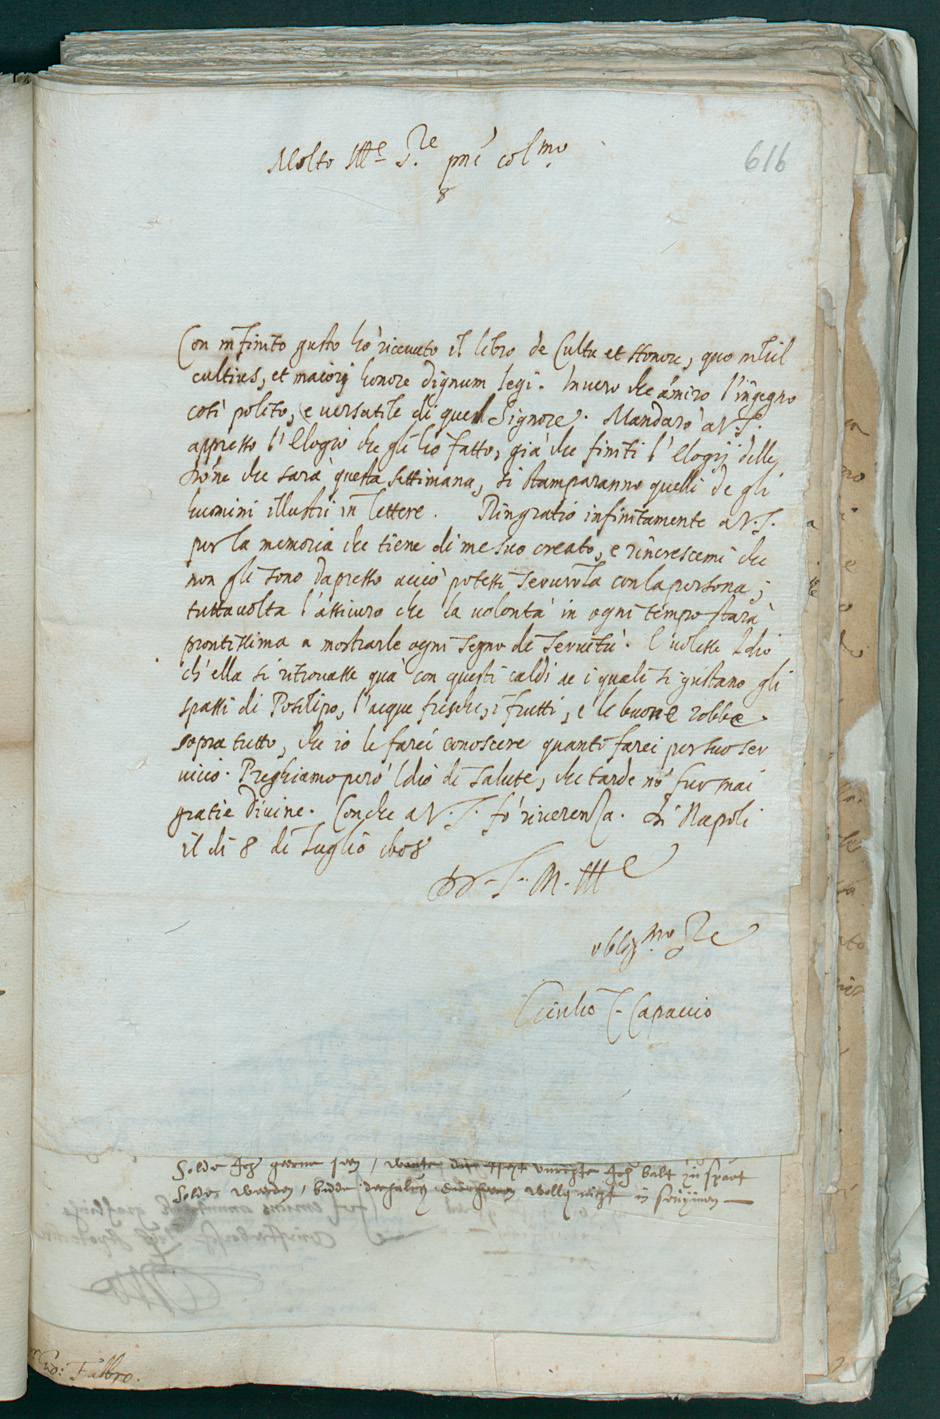 Molto Ill^e S.^re pne col^mo
616
Con infinito gusto hò riceuuto il libro de Cultu et Honore, quo nihil
cultius, et maiorj honore dignum legi. Inuero che amiro l'ingegno
cosi polito, e uersatile di quel Signore. Mandarò a V.S.
appresso l'Elogio che gli hò fatto, già che finiti l'Elogij delle
Done che sarà questa settimana, si stamparanno quelli de gli
huomini illustri in lettere. Ringratio infinitamente a V.S.
per la memoria che tiene di me suo creato, e rincrescemi che
non gli sono dapresso acciò potessi seruirla con la persona;
tuttauolta l'assicuro che la uolontà in ogni tempo starà
prontissima a mostrarle ogni segno de seruitù. E uolesse Idio
ch'ella si ritrouasse quà con questi caldi ne i quali si gustano gli
spassi di Posilipo, l'acque fresche, i frutti, e le buone robbe
sopra tutto, che io le farei conoscere quanto farei per suo ser
uicio. Preghiamo però Idio di salute, che tarde nõ fur mai
gratie Diuine. Con che a V.S. fò riuerenza. Di Napoli
il di 8 di Luglio 1608
D V. S. M. Ill^e
oblig^mo S^re
Giulio C. Capaccio
Solde Ich gerne
balt zu spaet
Soldes werden,
Fabro.